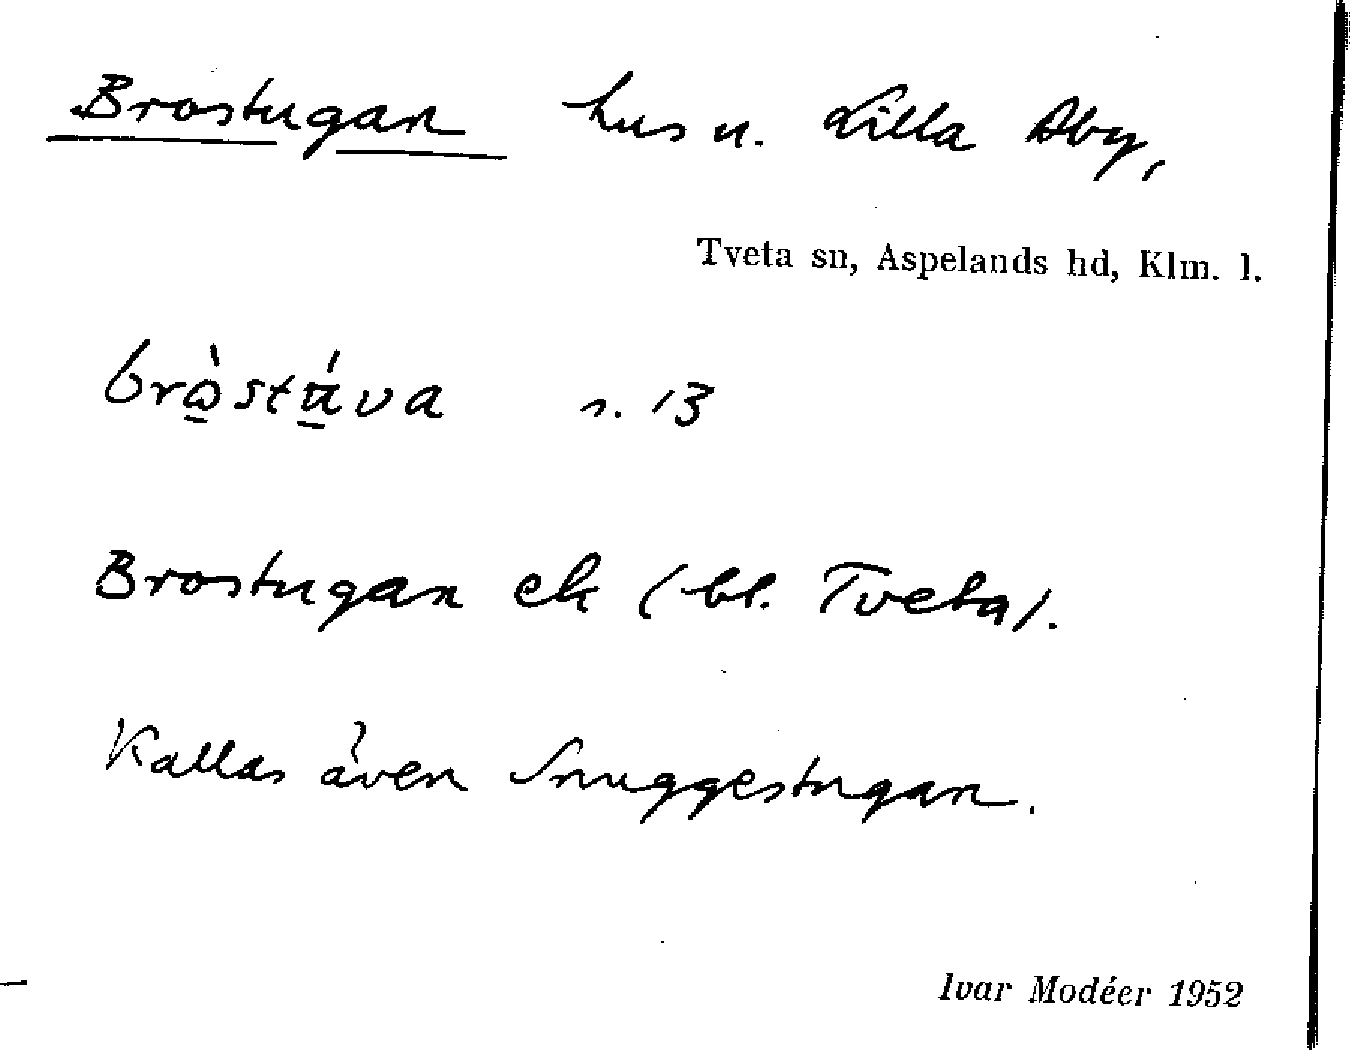 Brostugan hus u. Lilla Aby,
Tveta sn, Aspelands hd, Klm. l.
brò̲stú̲va s. 13
Brostugan ek (bl. Tveta).
Kallas även Snuggestugan.
Ivar Modéer 1952